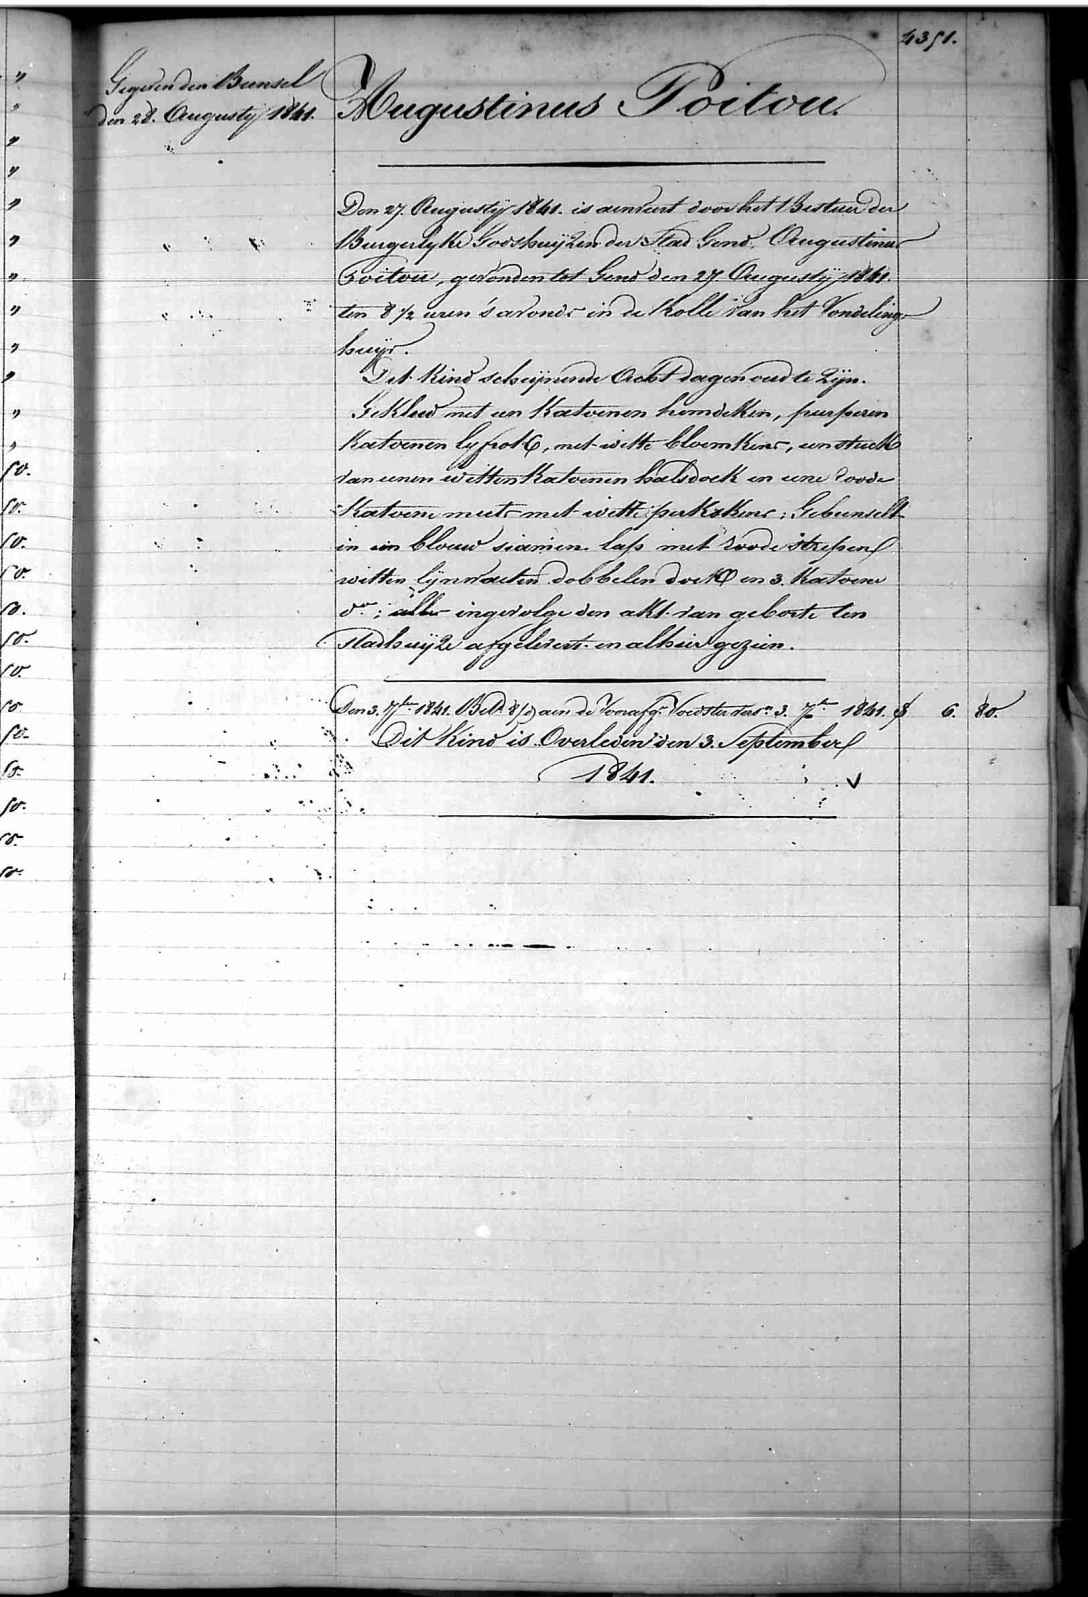 4351.
Gegeven den Bunsel
den 28. Augusty 1841.
Augustinus Poitou.
Den 27. Augusty 1841. is aenveert door het Bestuer der
Burgerlyke Godshuyzen der Stad Gend, Augustinus
Poitou, gevonden tot Gend den 27. Augusty 1841.
ten 8 1/2 uren 's avonds in de Rolle van het Vondeling-
huys.
Dit kind scheijnende Acht dagen oud te zijn.
Gekleed met een Katoenen hemdeken, purperen
Katoenen lyfrok, met witte bloemkens, een stuck
van eenen witten Katoenen halsdoek en eene roode
Katoene muts met witte perkskens; Gebunselt
in een blouw siamen lap met roode strepen
witten lijnwaeten dobbelen doek en 3. Katoene
do; alles ingevolge den akt van geboorte ten
Stadhuijze afgelevert en alhier gezien.
Den 3. 7ber 1841. Beld. aen de Voedster 3. 7ber 1841. 6. 80.
Dit Kind is Overleden den 3. September
1841. V
"
"
"
"
"
"
"
"
"
"
"
"
50.
50.
50.
50.
50.
50.
50.
50
50.
50.
50.
50.
50.